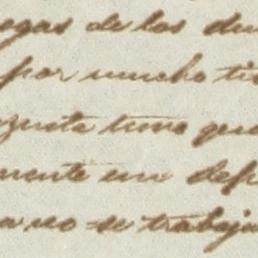 egas de los du
por mucho ti
zquita tuvo que
mente un dep
a no se trabaja